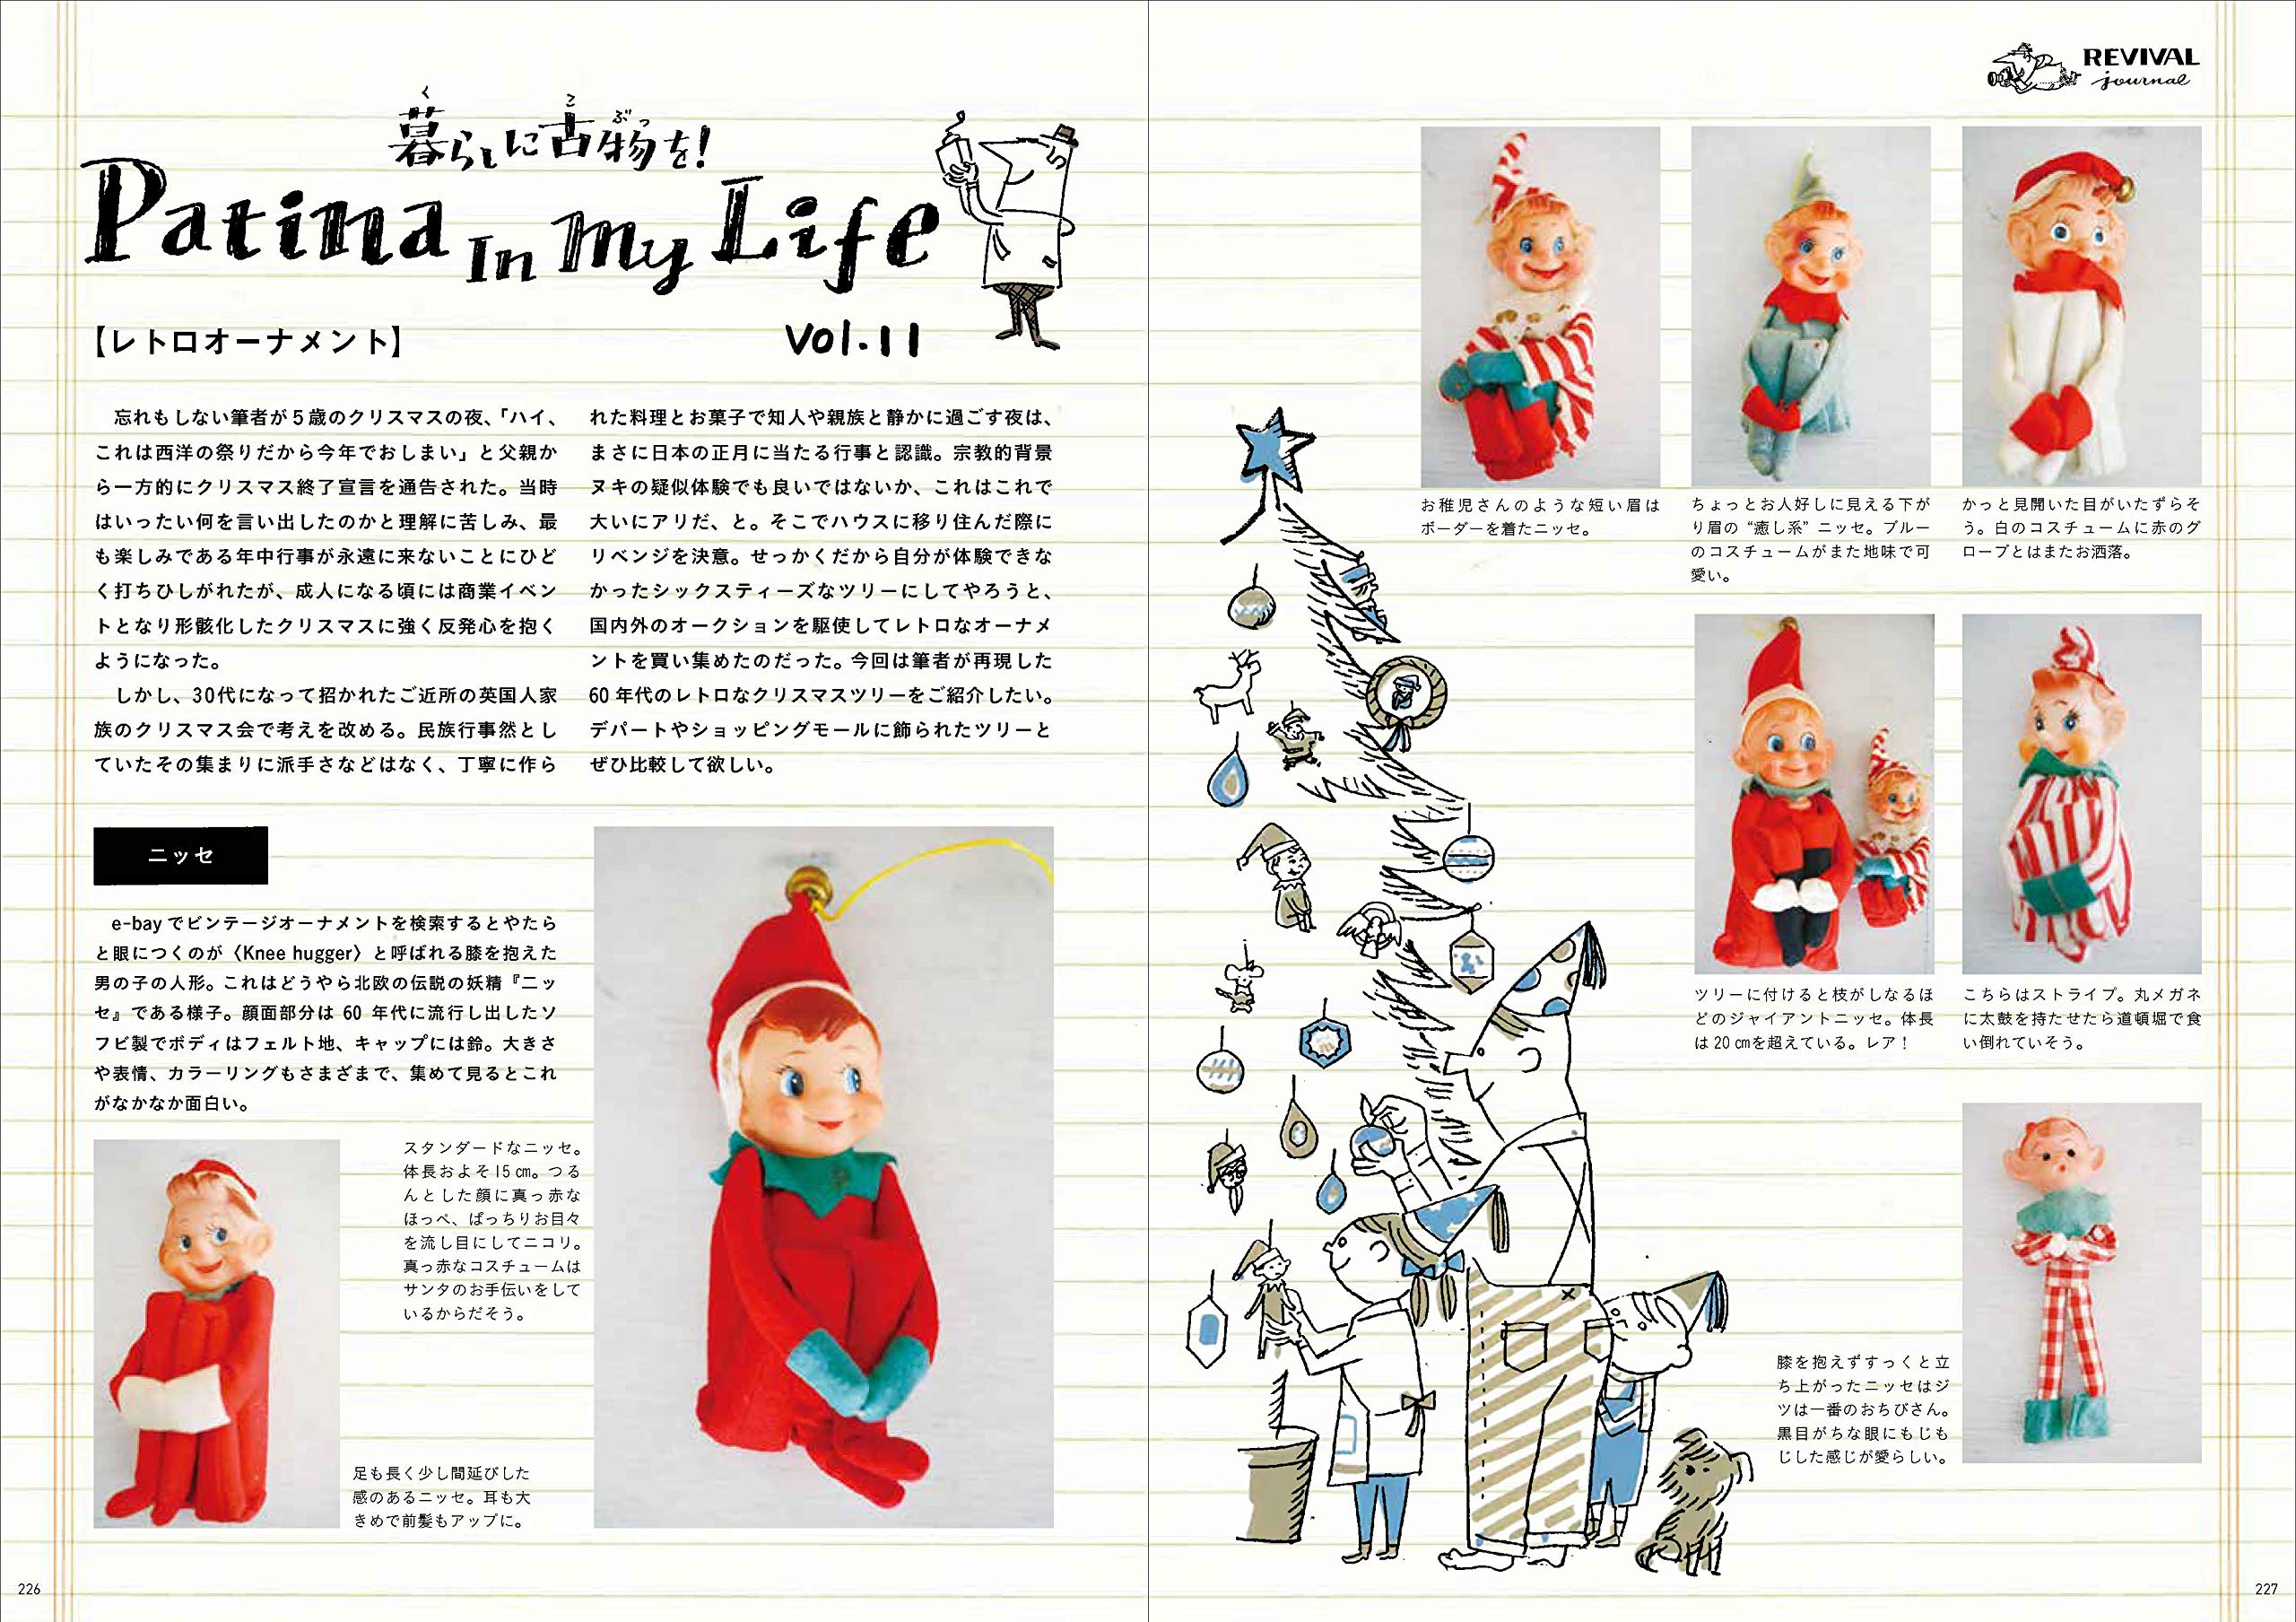 暮らしに古物を!
く
こ
ぶつ
Patina In My Life
vol.11
【レトロオーナメント】
忘れもしない筆者が5歳のクリスマスの夜、「ハイ、
これは西洋の祭りだから今年でおしまい」と父親か
ら一方的にクリスマス終了宣言を通告された。当時
はいったい何を言い出したのかと理解に苦しみ、最
も楽しみである年中行事が永遠に来ないことにひど
く打ちひしがれたが、成人になる頃には商業イベン
トとなり形骸化したクリスマスに強く反発心を抱く
ようになった。
しかし、30代になって招かれたご近所の英国人家
族のクリスマス会で考えを改める。民族行事然とし
ていたその集まりに派手さなどはなく、丁寧に作ら
れた料理とお菓子で知人や親族と静かに過ごす夜は、
まさに日本の正月に当たる行事と認識。宗教的背景
ヌキの疑似体験でも良いではないか、これはこれで
大いにアリだ、と。そこでハウスに移り住んだ際に
リベンジを決意。せっかくだから自分が体験できな
かったシックスティーズなツリーにしてやろうと、
国内外のオークションを駆使してレトロなオーナメ
ントを買い集めたのだった。今回は筆者が再現した
60年代のレトロなクリスマスツリーをご紹介したい。
デパートやショッピングモールに飾られたツリーと
ぜひ比較して欲しい。
ニッセ
e-bayでビンテージオーナメントを検索するとやたら
と眼につくのが〈Knee hugger〉と呼ばれる膝を抱えた
男の子の人形。これはどうやら北欧の伝説の妖精『ニッ
セ』である様子。顔面部分は60年代に流行し出したソ
フビ製でボディはフェルト地、キャップには鈴。大きさ
や表情、カラーリングもさまざまで、集めて見るとこれ
がなかなか面白い。
スタンダードなニッセ。
体長およそ15㎝。つる
んとした顔に真っ赤な
ほっぺ、ぱっちりお目々
を流し目にしてニコリ。
真っ赤なコスチュームは
サンタのお手伝いをして
いるからだそう。
足も長く少し間延びした
感のあるニッセ。耳も大
きめで前髪もアップに。
226
REVIVAL
journal
お稚児さんのような短い眉は
ボーダーを着たニッセ。
ちょっとお人好しに見える下が
り眉の“癒し系”ニッセ。ブルー
のコスチュームがまた地味で可
愛い。
かっと見開いた目がいたずらそ
う。白のコスチュームに赤のグ
ローブとはまたお洒落。
ツリーに付けると枝がしなるほ
どのジャイアントニッセ。体長
は20㎝を超えている。レア!
こちらはストライプ。丸メガネ
に太鼓を持たせたら道頓堀で食
い倒れていそう。
膝を抱えずすっくと立
ち上がったニッセはジ
ツは一番のおちびさん。
黒目がちな眼にもじも
じした感じが愛らしい。
227